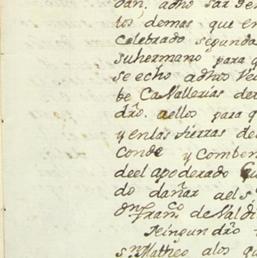 dan. adho sar den
los demas que en
celebrado segunda
suhermano para q
se echo adhos Vec
be Cavallerias de
dro. aellos para q
y enlas tierras de
Conde y Comben
deel apoderado qu
do dañar ael s
Dn Franco de Valdi
seingun dro
sn Matheo alos qu